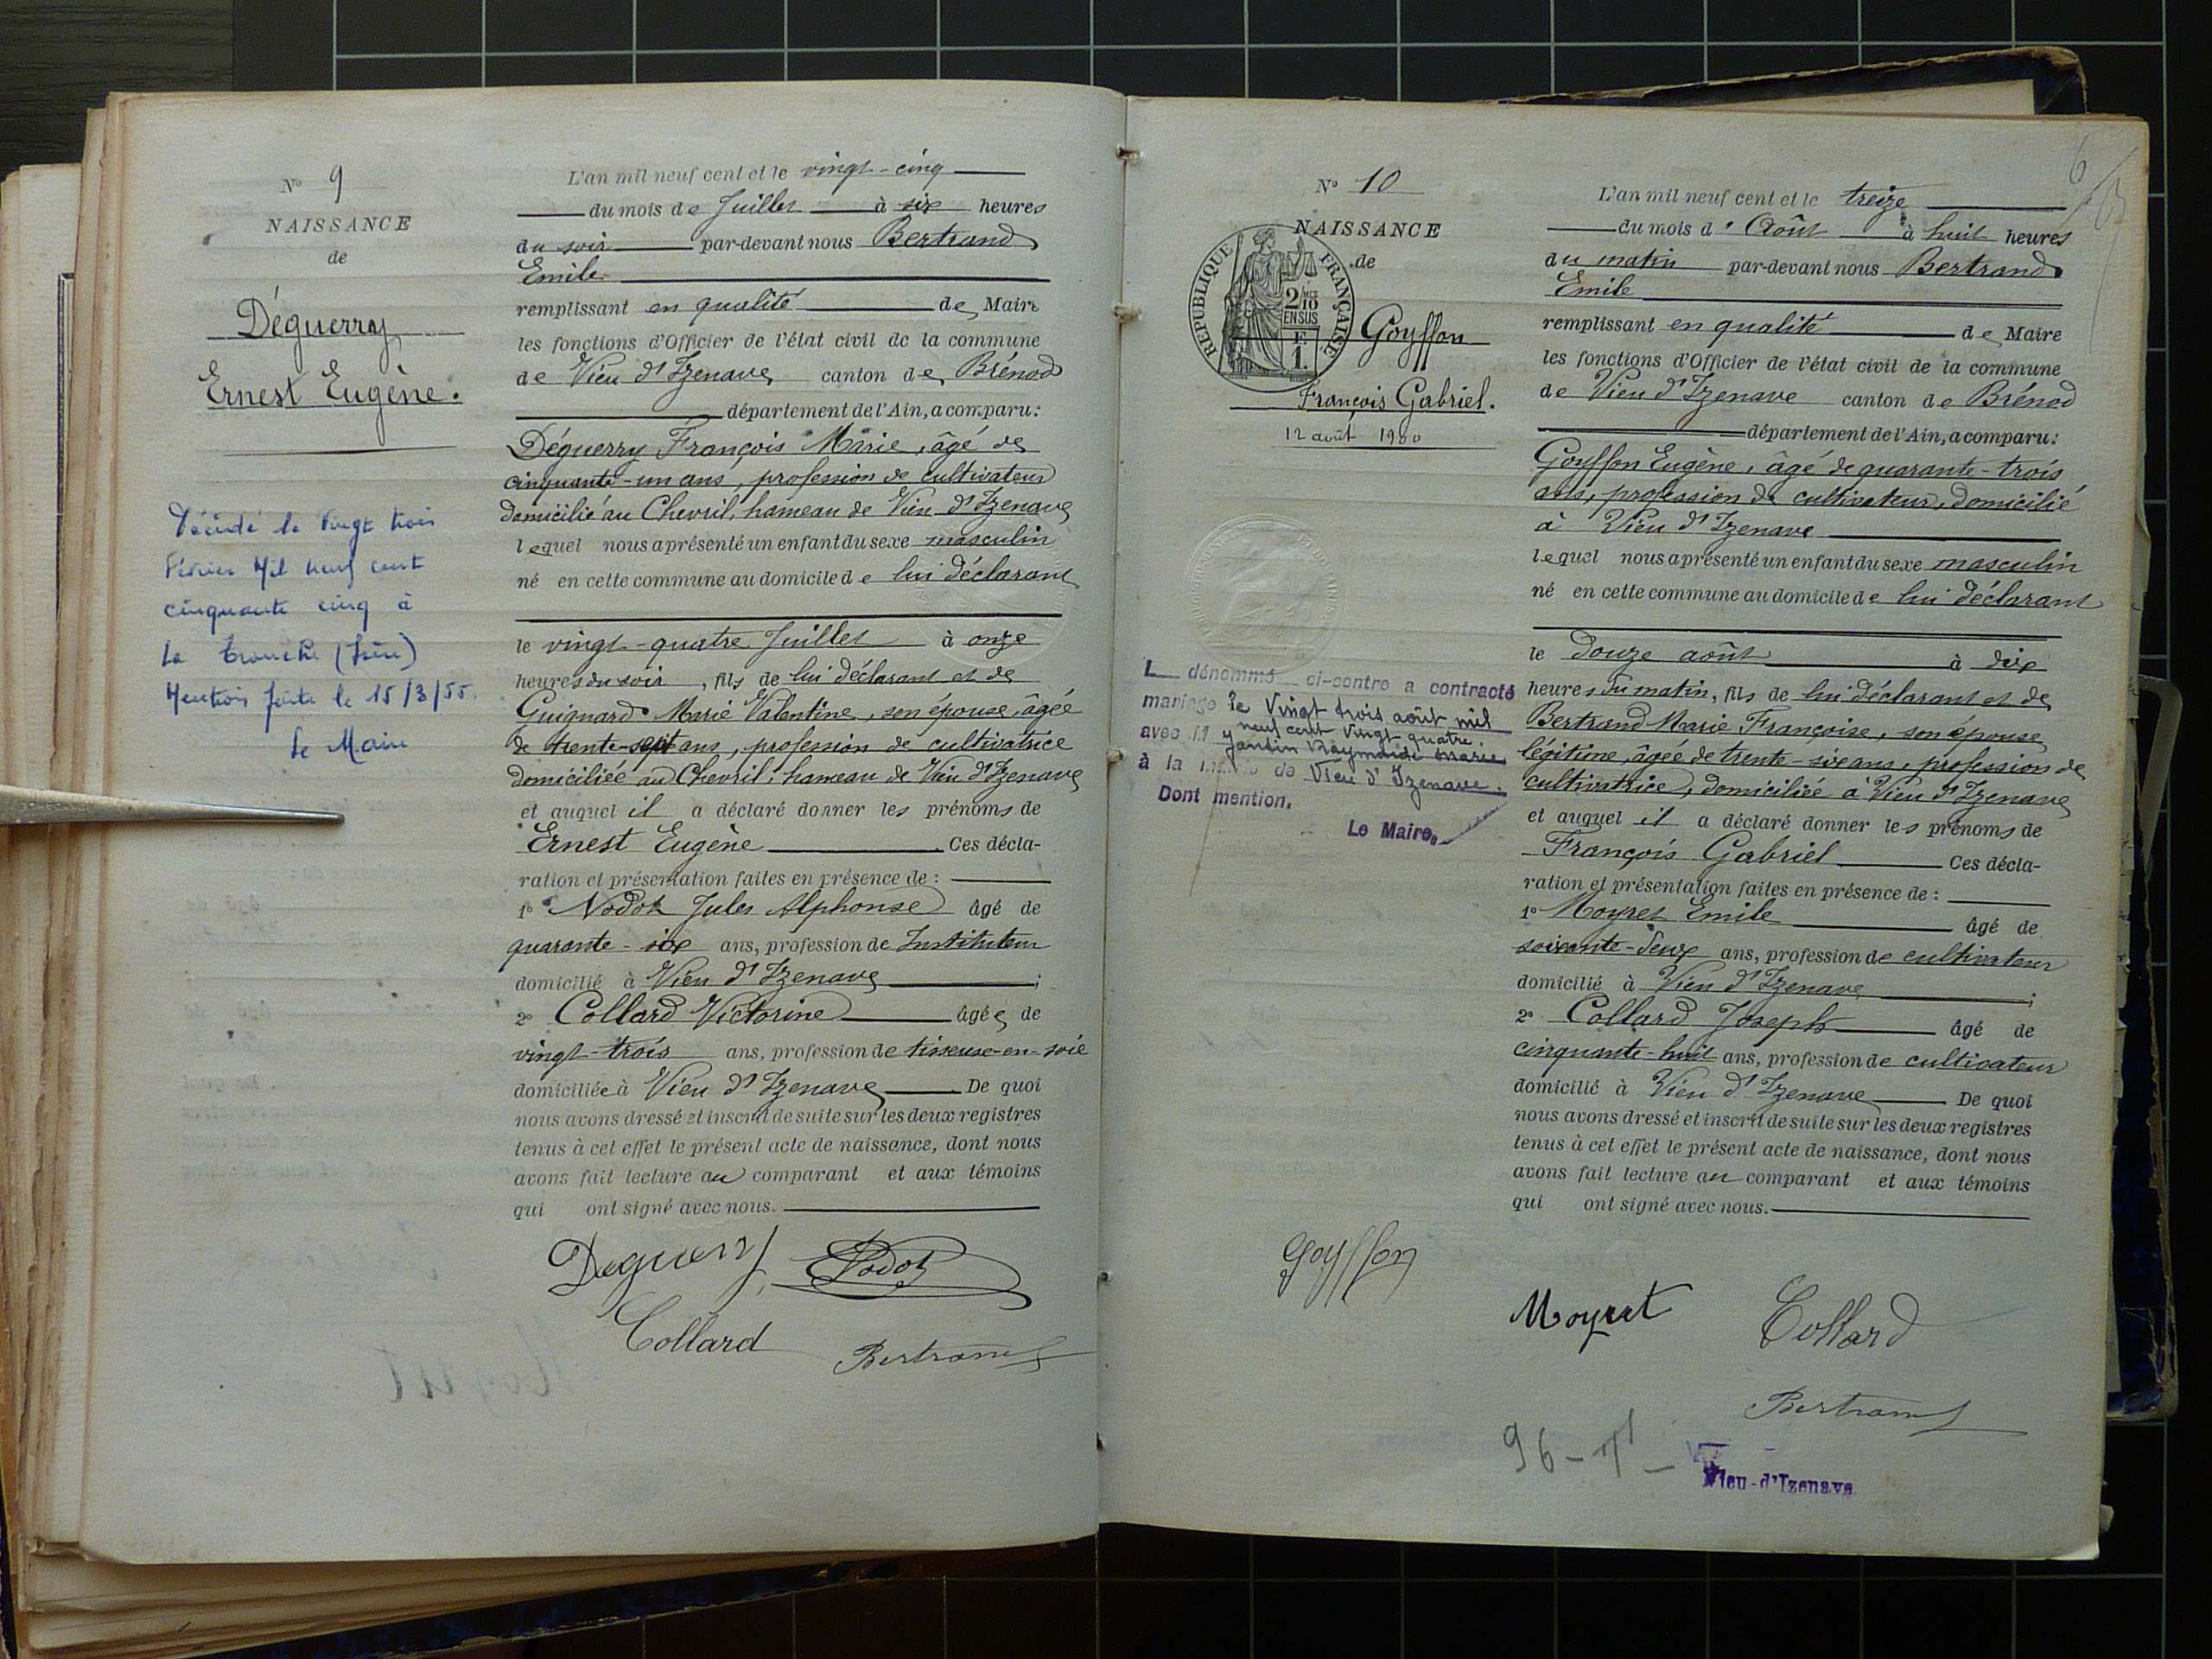 N° 9
NAISSANCE
de
Déguerry
Ernest Eugène.
Décédé le vingt trois
Février Mil neuf cent
cinquante cinq à
La Tronche (Isère)
Mention faite le 15/3/55.
Le Maire
L'an mil neuf cent et le vingt-cinq
du mois de Juillet à six heures
du soir par-devant nous Bertrand
Emile
remplissant en qualité de Maire
les fonctions d'Officier de l'état civil de la commune
de Vieu d'Izenave canton de Brénod
département de l'Ain, a comparu:
Déguerry François Marie, âgé de
cinquante-un ans, profession de cultivateur
domicilié au Chevril, hameau de Vieu d'Izenave
lequel nous a présenté un enfant du sexe masculin
né en cette commune au domicile de lui déclarant
le vingt-quatre Juillet à onze
heures du soir, fils de lui déclarant et de
Guignard Marie Valentine, son épouse, âgée
de trente-sept ans, profession de cultivatrice
domiciliée au Chevril, hameau de Vieu d'Izenave
et auquel il a déclaré donner les prénoms de
Ernest Eugène Ces décla-
ration et présentation faites en présence de :
1° Nodot Jules Alphonse âgé de
quarante-six ans, profession de Instituteur
domicilié à Vieu d'Izenave ;
2° Collard Victorine âgée de
vingt-trois ans, profession de tisseuse-en-soie
domiciliée à Vieu d'Izenave De quoi
nous avons dressé et inscrit de suite sur les deux registres
tenus à cet effet le présent acte de naissance, dont nous
avons fait lecture au comparant et aux témoins
qui ont signé avec nous.
Deguerry Nodot
Collard Bertrand
N° 10
NAISSANCE
de
REPUBLIQUE FRANÇAISE
2/10 MES
EN SUS
F
1.
Goyffon
François Gabriel.
12 août 1900
L dénommé ci-contre a contracté
mariage le vingt trois août mil
neuf cent vingt quatre.
avec M Jantin Raymonde Marie
à la mairie de Vieu d'Izenave.
Dont mention.
Le Maire,
L'an mil neuf cent et le treize
du mois d'Août à huit heures
du matin par-devant nous Bertrand
Emile
remplissant en qualité de Maire
les fonctions d'Officier de l'état civil de la commune
de Vieu d'Izenave canton de Brénod
département de l'Ain, a comparu:
Goyffon Eugène, âgé de quarante-trois
ans, profession de cultivateur, domicilié
à Vieu d'Izenave
lequel nous a présenté un enfant du sexe masculin
né en cette commune au domicile de lui déclarant
le douze août à dix
heures du matin, fils de lui déclarant et de
Bertrand Marie Françoise, son épouse
légitime, âgée de trente-six ans, profession de
cultivatrice, domiciliée à Vieu d'Izenave
et auquel il a déclaré donner les prénoms de
François Gabriel Ces décla-
ration et présentation faites en présence de :
1° Moyret Emile âgé de
soixante-deux ans, profession de cultivateur
domicilié à Vieu d'Izenave ;
2° Collard Joseph âgé de
cinquante-huit ans, profession de cultivateur
domicilié à Vieu d'Izenave De quoi
nous avons dressé et inscrit de suite sur les deux registres
tenus à cet effet le présent acte de naissance, dont nous
avons fait lecture au comparant et aux témoins
qui ont signé avec nous.
Goyffon
Moyret Collard
Bertrand
96
Vieu-d'Izenave